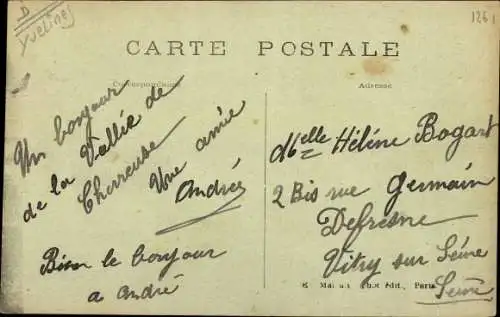 D
Yvelines
1261
CARTE POSTALE
Correspondance
Adresse
Un bonjour
de la Vallée de
Chevreuse
Une amie
Andrée
Bien le bonjour
a André
Melle Hélène Bogart
2 Bis rue Germain
Defresne
Vitry sur Séine
Seine
phot édit., Paris